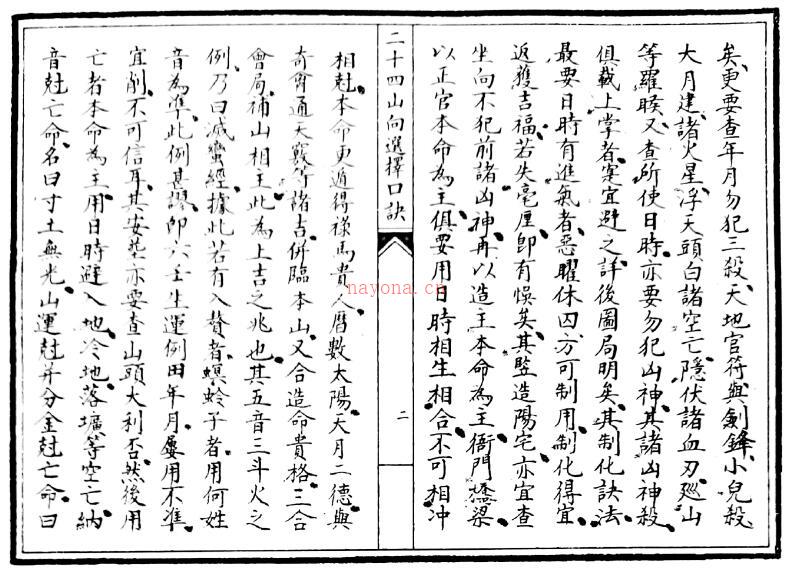 矣更要查年月勿犯三殺天地官符與劍鋒小兒殺
大月建諸火星浮天頭白諸空亡隱伏諸血刃廵山
等羅睺又查所使日時亦要勿犯凶神其諸凶神殺
俱載上掌者寔宜避之詳後圖局明矣其制化訣法
最要日時有進氣者惡曜休囚方可制用制化得宜
返獲吉福若失毫厘即有悞矣其竪造陽宅亦宜查
坐向不犯前諸凶神再以造主本命為主衙門橋梁
以正官本命為主俱要用日時相生相合不可相沖
二十四山向選擇口訣
二
相尅本命更遁得祿馬貴人曆數太陽天月二德與
奇宵通天竅等諸吉併臨本山又合造命貴格三合
會局補山相主此為上吉之兆也其五音三斗火之
例乃曰滅蠻經據此若有入贅者螟蛉子者用何姓
音為凖此例甚謬即六壬生運例田年月屢用不凖
宜削不可信耳其安塟亦要查山頭大利否然後用
亡者本命為主用日時避入地冷地落壙等空亡納
音尅亡命名曰寸土無光山運尅并分金尅亡命曰
nayona.cn